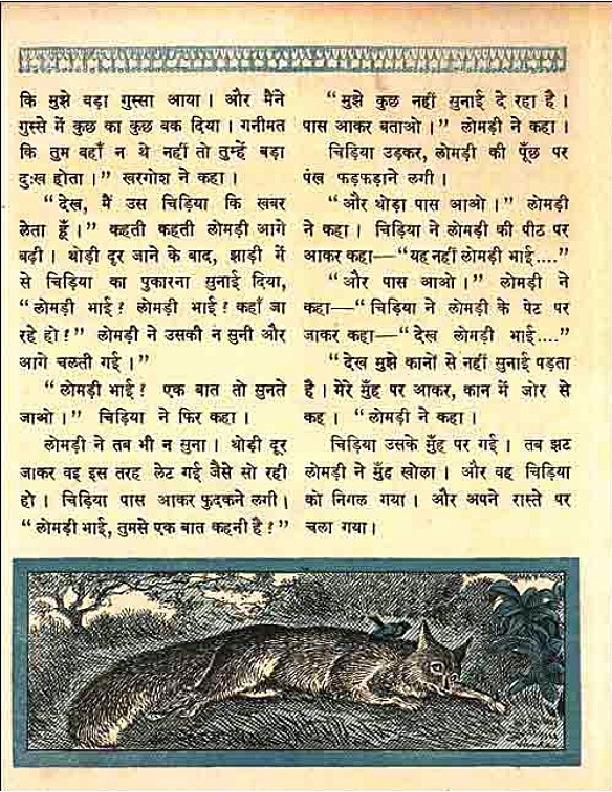 कि मुझे बड़ा गुस्सा आया। और मैंने
गुस्से में कुछ का कुछ बक दिया। गनीमत
कि तुम वहाँ न थे नहीं तो तुम्हें बड़ा
दुःख होता।” खरगोश ने कहा।
“देख, मैं उस चिड़िया कि खबर
लेता हूँ।” कहती कहती लोमड़ी आगे
बढ़ी। थोड़ी दूर जाने के बाद, झाड़ी में
से चिड़िया का पुकारना सुनाई दिया,
“लोमड़ी भाई! लोमड़ी भाई! कहाँ जा
रहे हो!” लोमड़ी ने उसकी न सुनी और
आगे चलती गई।”
“लोमड़ी भाई! एक बात तो सुनते
जाओ।” चिड़िया ने फिर कहा।
लोमड़ी ने तब भी न सुना। थोड़ी दूर
जाकर वह इस तरह लेट गई जैसे सो रही
हो। चिड़िया पास आकर फुदकने लगी।
“लोमड़ी भाई, तुमसे एक बात कहनी है!”
“मुझे कुछ नहीं सुनाई दे रहा है।
पास आकर बताओ।” लोमड़ी ने कहा।
चिड़िया उड़कर, लोमड़ी की पूँछ पर
पंख फड़फड़ाने लगी।
“और थोड़ा पास आओ।” लोमड़ी
ने कहा। चिड़िया ने लोमड़ी की पीठ पर
आकर कहा—“यह नहीं लोमड़ी भाई....”
“और पास आओ।” लोमड़ी ने
कहा—“चिड़िया ने लोमड़ी के पेट पर
जाकर कहा—“देख लोमड़ी भाई....”
“देख मुझे कानों से नहीं सुनाई पड़ता
है। मेरे मुँह पर आकर, कान में जोर से
कह। “लोमड़ी ने कहा।
चिड़िया उसके मुँह पर गई। तब झट
लोमड़ी ने मुँह खोला। और वह चिड़िया
को निगल गया। और अपने रास्ते पर
चला गया।